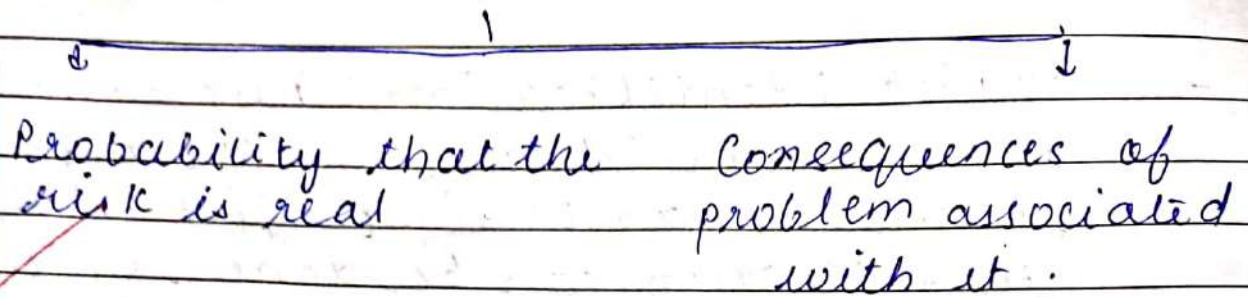 Probability that the
risk is real
Consequences of
problem associated
with it.